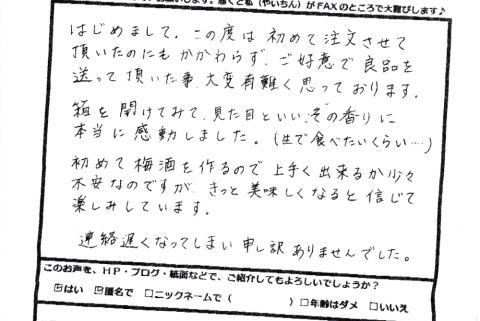 届くと私（やいちん）がFAXのところで大喜びします♪
はじめまして。この度は初めて注文させて
頂いたのにもかかわらず、ご好意で良品を
送って頂いた事、大変有難く思っております。
箱を開けてみて、見た目といい、その香りに
本当に感動しました。(生で食べたいくらい…)
初めて梅酒を作るので上手く出来るか少々
不安なのですが、きっと美味しくなると信じて
楽しみしています。
連絡遅くなってしまい申し訳ありませんでした。
このお声を、ＨＰ・ブログ・紙面などで、ご紹介してもよろしいでしょうか？
☑はい ☑匿名で □ニックネームで（ ）□年齢はダメ □いいえ